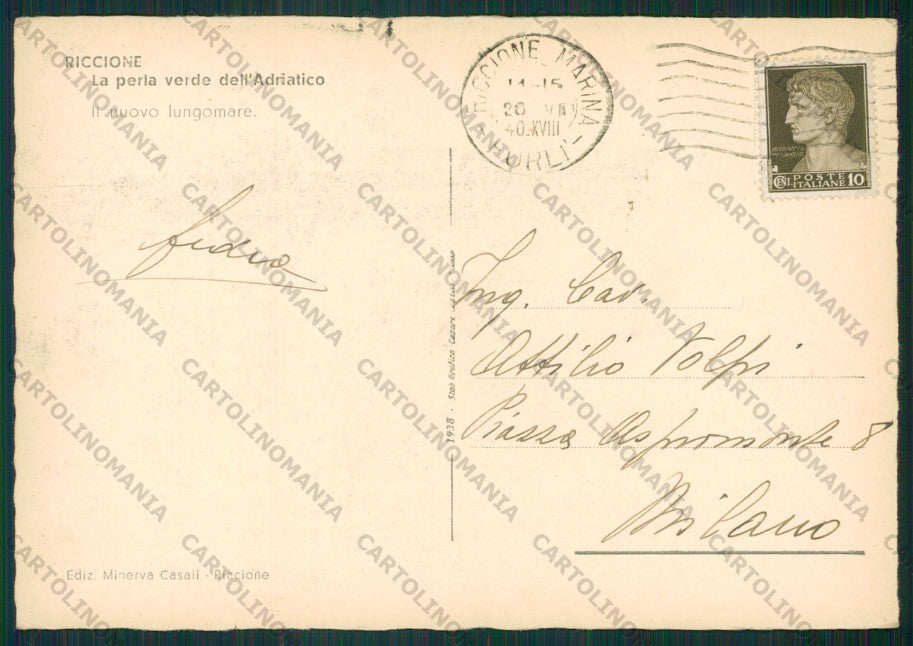 RICCIONE
La perla verde dell'Adriatico
Il nuovo lungomare.
RICCIONE MARINA
20 VII
40.XVIII
FORLI'
POSTE
CENT. ITALIANE 10
Ing. Cav.
Attilio Volpi
Piazza Aspromonte 8
Milano
1938 - Stab. Grafico Cesare
Ediz. Minerva Casali - Riccione
CARTOLINOMANIA